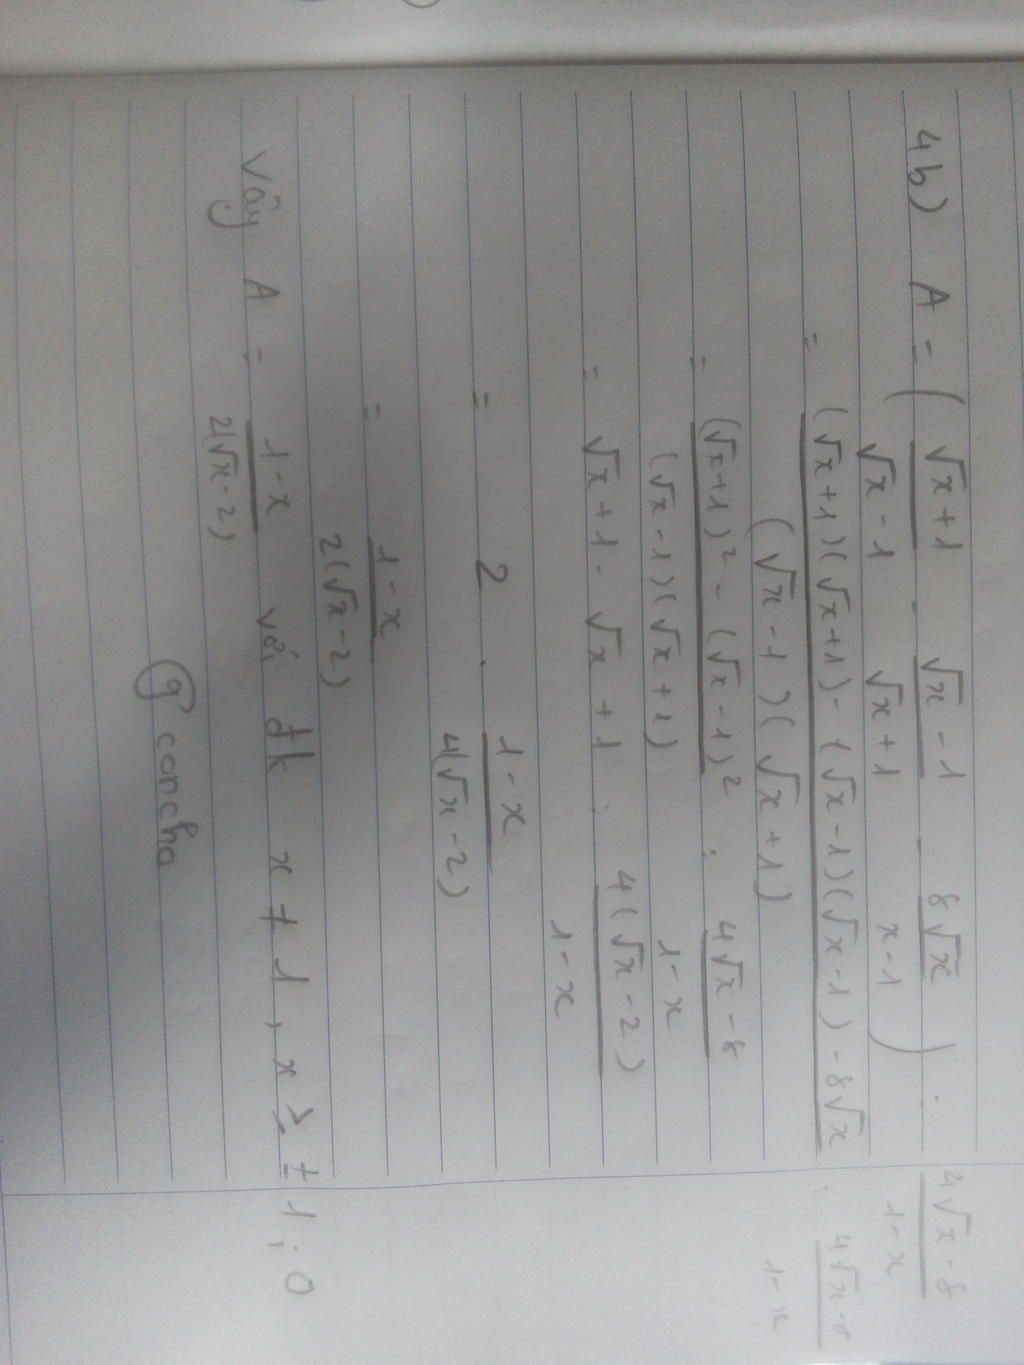 4b) A = ( √x+1 / √x-1 - √x-1 / √x+1 - 8√x / x-1 ) : 4√x-8 / 1-x
= (√x+1)(√x+1)-(√x-1)(√x-1)-8√x / (√x-1)(√x+1) : 4√x-8 / 1-x
= (√x+1)² - (√x-1)² / (√x-1)(√x+1) : 4√x-8 / 1-x
= √x+1 - √x+1 : 4(√x-2) / 1-x
= 2 . 1-x / 4(√x-2)
= 1-x / 2(√x-2)
Vậy A = 1-x / 2(√x-2) với đk x ≠ 1, x ≥ ±1; 0